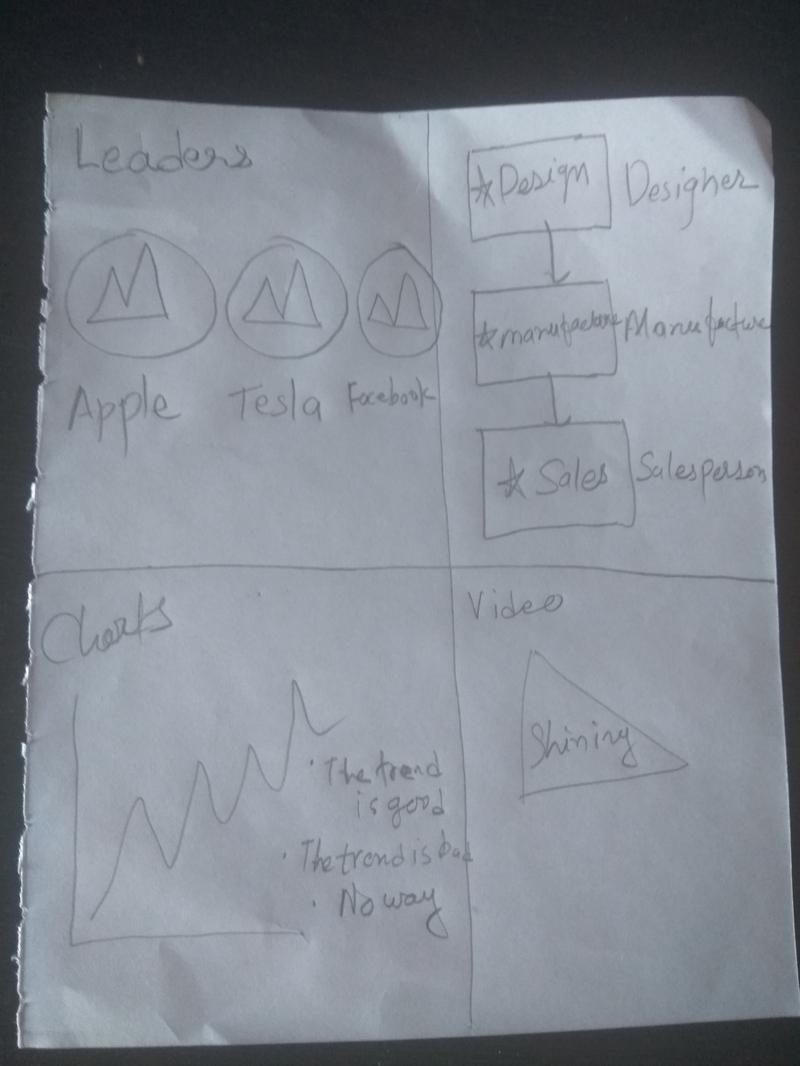 Leaders
Apple Tesla Facebook
☆Design Designer
☆manufacture Manufacture
☆ Sales Salesperson
Charts
· The trend
is good
· The trend is bad
· No way
Video
Shining